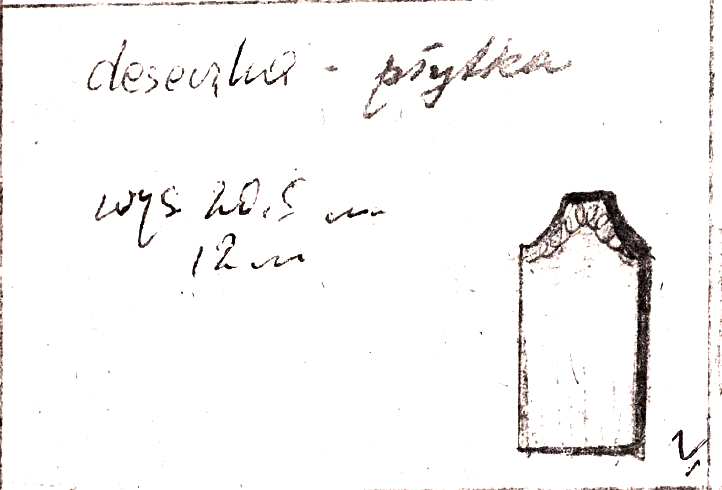 deseczka - płytka
wys 20,5 cm
12 cm